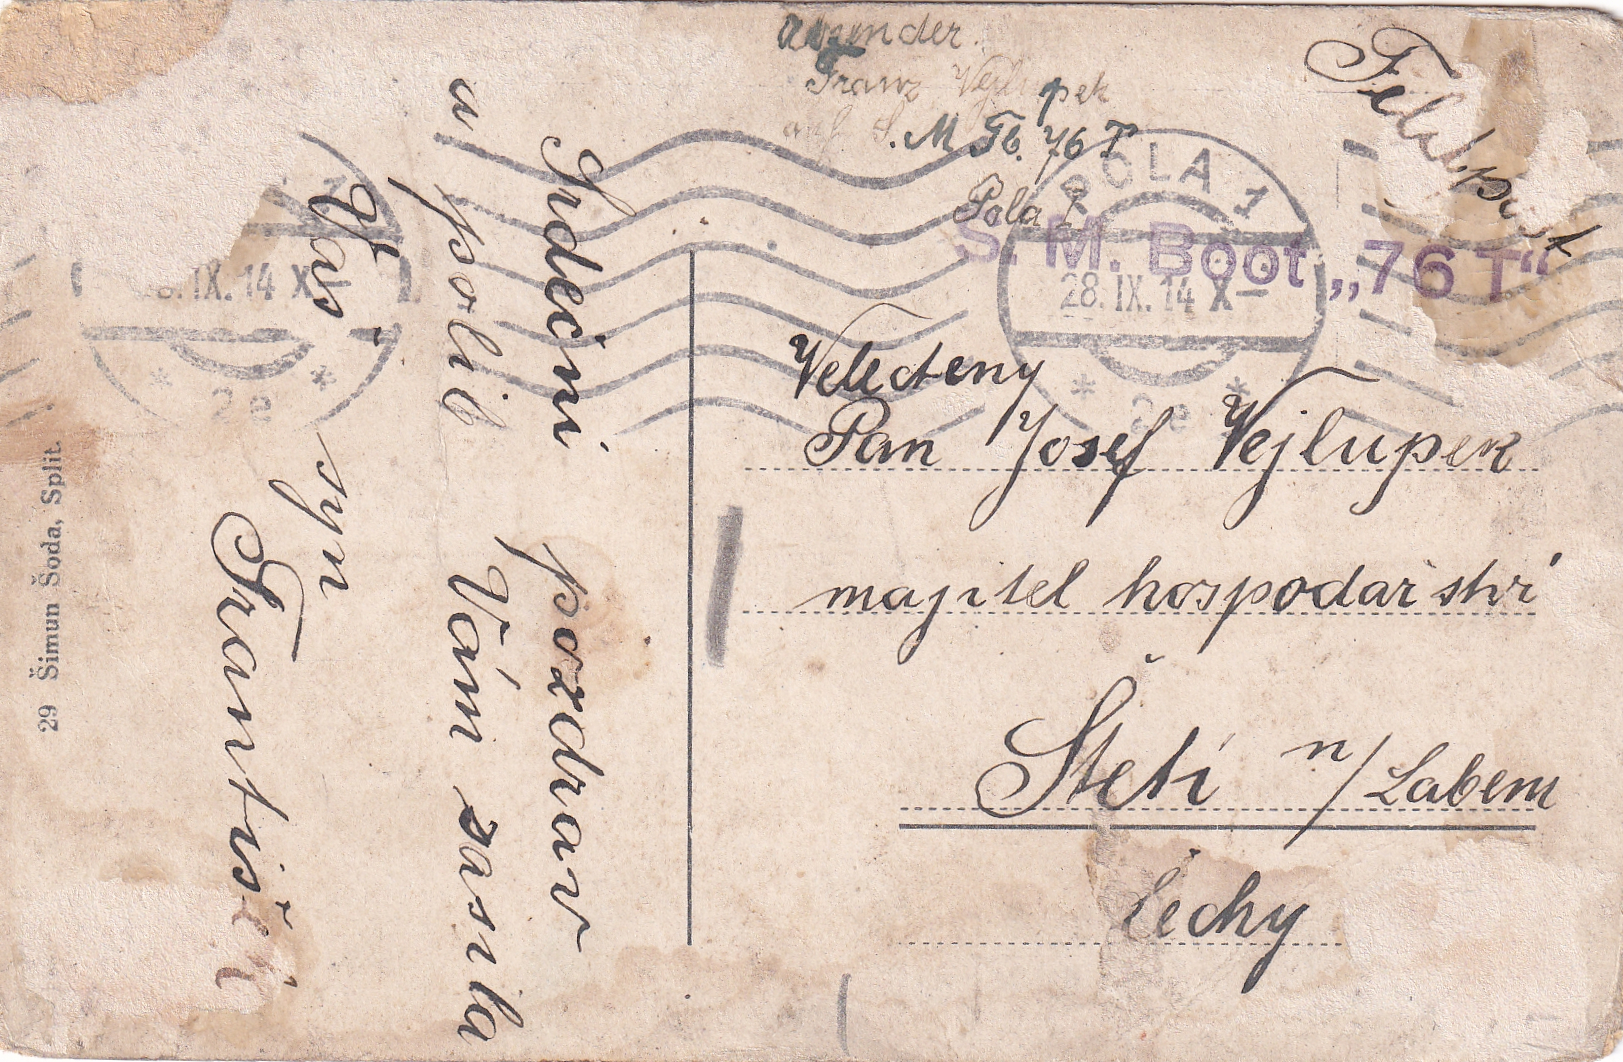 Absender.
Franz Vejlupek
auf S. M Tb. 76 T
Pola
Feldpost
POLA 1
28. IX. 14 X–
* 2e *
S. M. Boot „76 T“
Velecteny
Pan Josef Vejlupek
majitel hospodařství
Štetí n/Labem
Čechy
Srdečni pozdrav
a polib Vám zasila
Váš syn
František
1
28. IX. 14 X–
* 2e *
29 Šimun Šoda, Split.